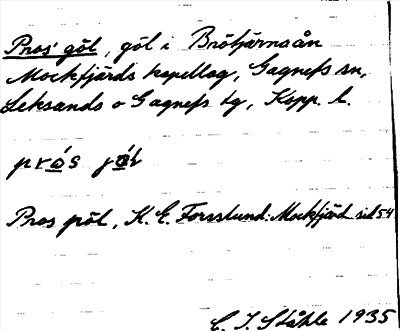 Pros' göl, göl i Brötjärnaån
Mockfjärds kapellag, Gagnefs sn,
Leksands o Gagnefs tg, Kopp. l.
prós
Pros pöl, K. E. Forsslund: Mockfjärd sid 54
C. I. Ståhle 1935